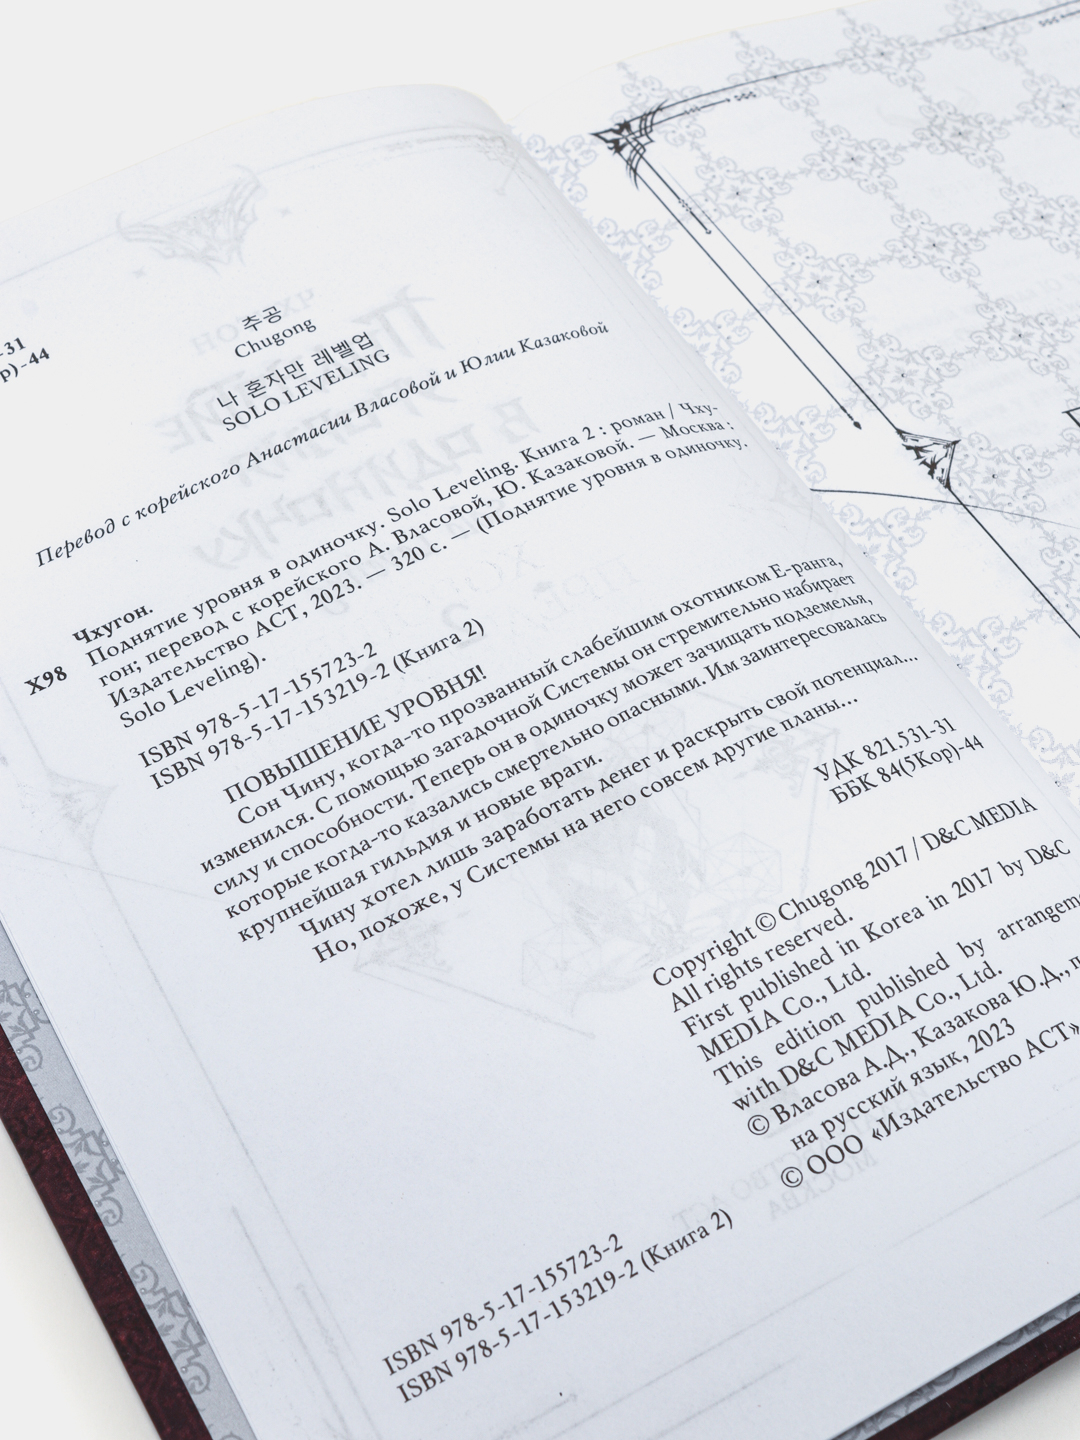 -31
р)-44
추공
Chugong
나 혼자만 레벨업
SOLO LEVELING
Перевод с корейского Анастасии Власовой и Юлии Казаковой
Чхугон.
Х98
Поднятие уровня в одиночку. Solo Leveling. Книга 2 : роман / Чху-
гон; перевод с корейского А. Власовой, Ю. Казаковой. — Москва :
Издательство АСТ, 2023. — 320 с. — (Поднятие уровня в одиночку.
Solo Leveling).
ISBN 978-5-17-155723-2
ISBN 978-5-17-153219-2 (Книга 2)
ПОВЫШЕНИЕ УРОВНЯ!
Сон Чину, когда-то прозванный слабейшим охотником Е-ранга,
изменился. С помощью загадочной Системы он стремительно набирает
силу и способности. Теперь он в одиночку может зачищать подземелья,
которые когда-то казались смертельно опасными. Им заинтересовалась
крупнейшая гильдия и новые враги.
Чину хотел лишь заработать денег и раскрыть свой потенциал...
Но, похоже, у Системы на него совсем другие планы...
УДК 821.531-31
ББК 84(5Кор)-44
Copyright © Chugong 2017 / D&C MEDIA
All rights reserved.
First published in Korea in 2017 by D&C
MEDIA Co., Ltd.
This edition published by arrangeme
with D&C MEDIA Co., Ltd.
© Власова А.Д., Казакова Ю.Д., п
на русский язык, 2023
© ООО «Издательство АСТ»
ISBN 978-5-17-155723-2
ISBN 978-5-17-153219-2 (Книга 2)